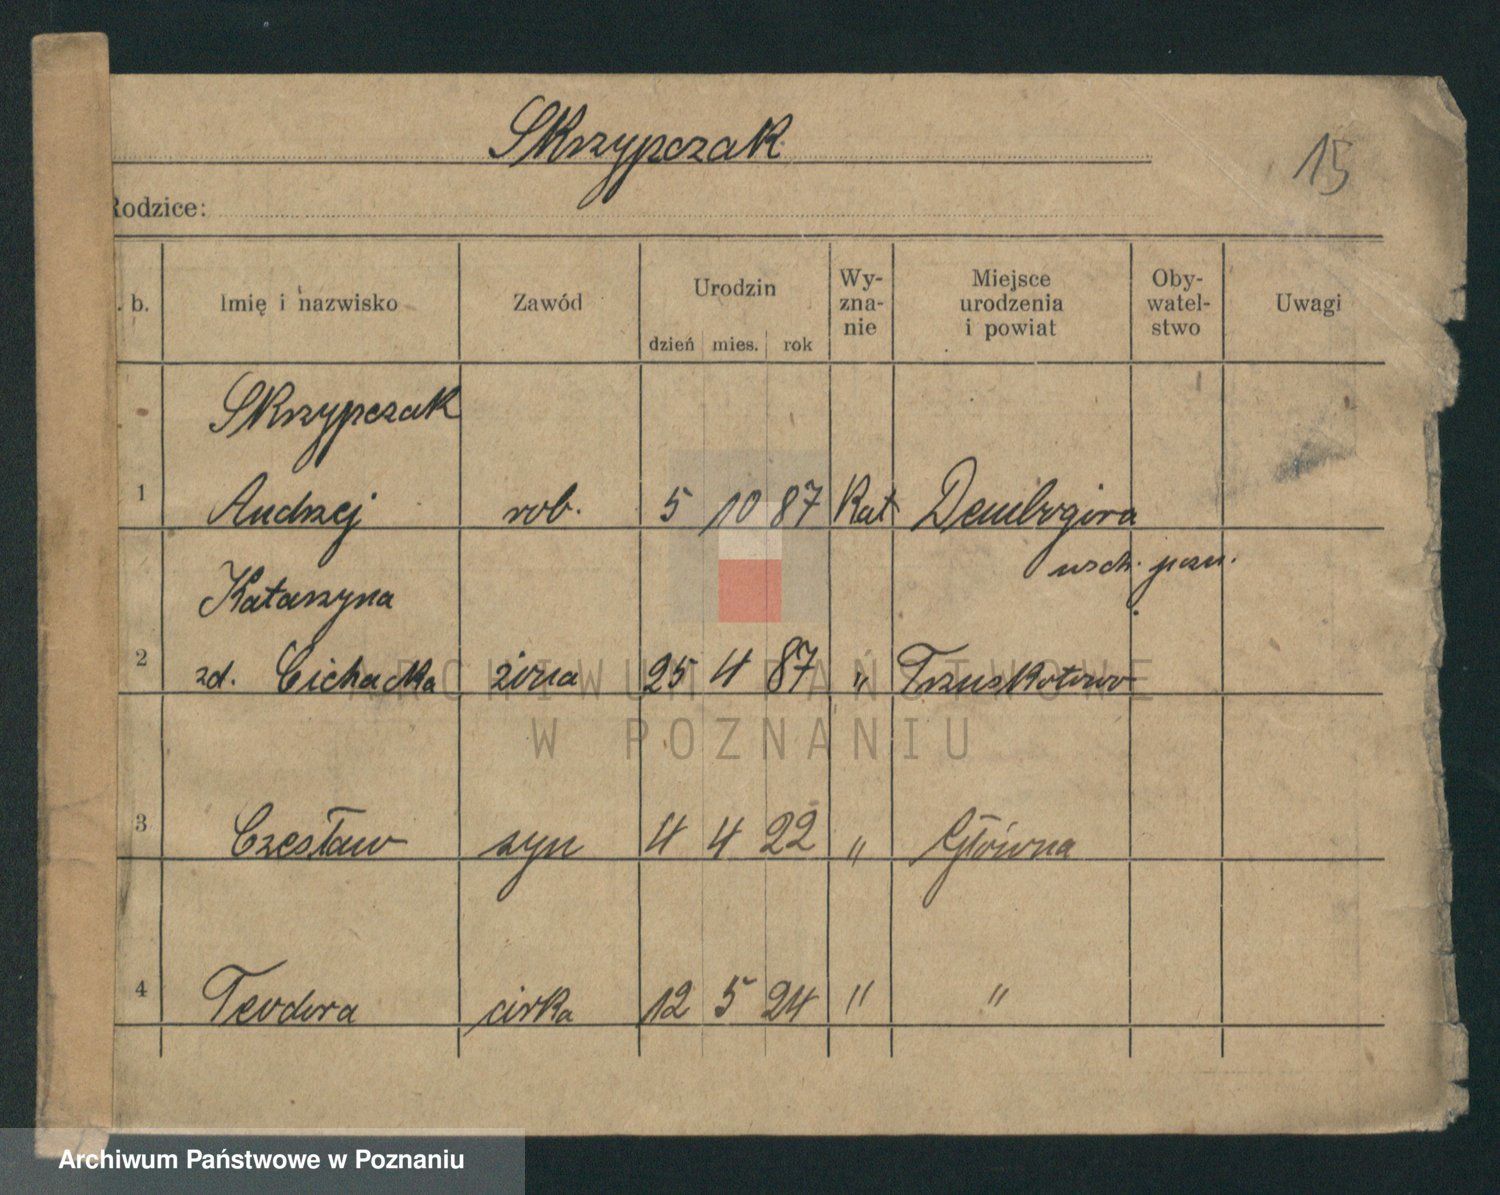 Skrzypczak
15
Rodzice:
. b.
Imię i nazwisko
Zawód
Urodzin
dzień mies. rok
Wy-
zna-
nie
Miejsce
urodzenia
i powiat
Oby-
watel-
stwo
Uwagi
Skrzypczak
1 Andrzej rob. 5 10 87 Kat Dembogóra
wsch. pozn.
Katarzyna
2 zd. Cichacka żona 25 4 87 " Truskotowo
3 Czesław syn 4 4 22 " Główna
4 Teodora córka 12 5 24 " "
ARCHIWUM PAŃSTWOWE
W POZNANIU
Archiwum Państwowe w Poznaniu